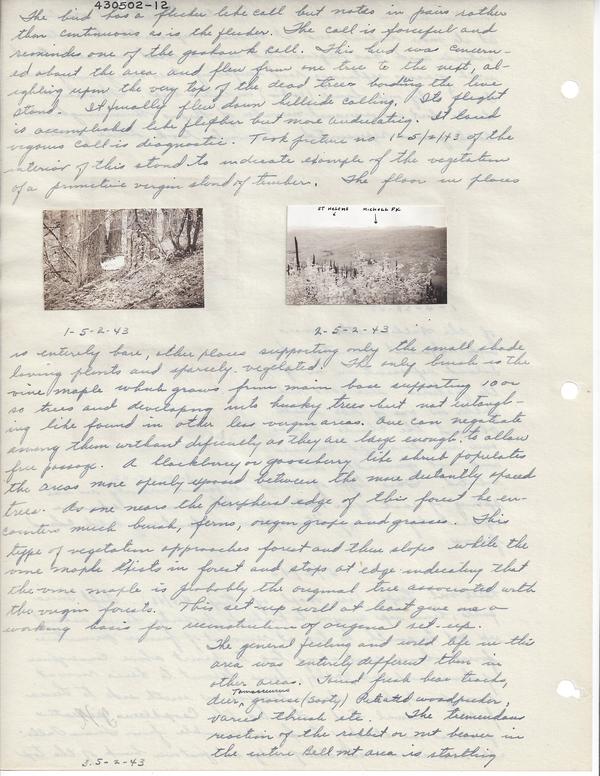 430502-12
The bird has a flicker like call but notes in pairs rather
than continuous as is the flicker. The call is forceful and
reminides one of the goshawk call. This bird was concern-
ed about the area and flew from one tree to the next, al-
ighting upon the very top of the dead trees bordering the live
stand. It finally flew down hillside calling. Its flight
is accomplished like flicker but more undulating. It loud
vigorus call is diagnostic. Took picture no 1-5/2/43 of the
interior of this stand to indicate example of the vegetation
of a primitive virgin stand of timber. The floor in places
ST HELENS NICHOLL PK
1-5-2-43 2-5-2-43
is entirely bare, other places supporting only the small shade
loving plants and sparsly vegetated. The only brush is the
vine maple which grows from main base supporting 10 or
so trees and developing into husky trees but not entangl-
ing like found in other less virgin areas. One can negotiate
among them without dificulty as they are large enough to allow
free passage. A blackberry or gooseberry like shrub populates
the areas more openly exposed between the more distantly spaced
trees. As one nears the peripheral edge of this forest he en-
counters much brush, ferns, oregon grape and grasses. This
type of vegetation approaches forest and thus stops while the
vine maple exists in forest and stops at edge indicating that
the vine maple is probably the original tree associated with
the virgin forests. This set-up will at least give me a
working basis for reconstruction of original set-up.
The general feeling and wild life in this
area was entirely different than in
other areas. Found fresh bear tracks,
Tamiasciurus
deer, grouse (sooty) Pileated woodpecker,
varied thrush etc. The tremendous
reaction of the rabbit or mt beaver in
the entire Bell Mt area is startling
3.5-2-43